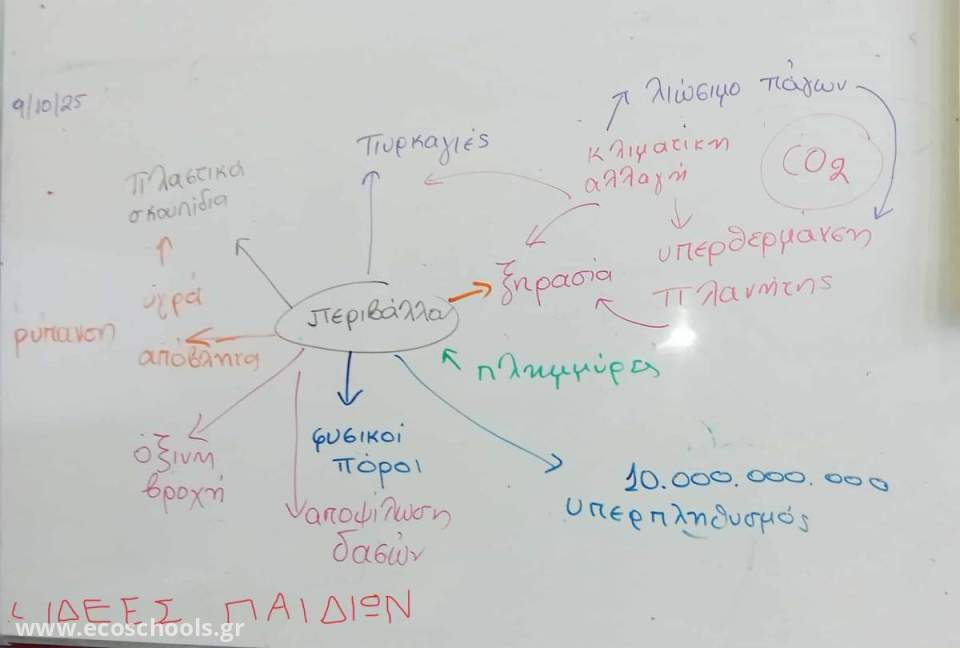 9/10/25
λιώσιμο πάγων
Πυρκαγιές
κλιματική
αλλαγή
CO2
Πλαστικά
σκουπίδια
υπερθέρμανση
πλανήτης
ξηρασία
υγρά
απόβλητα
ρύπανση
περιβάλλο
πλημμύρες
φυσικοί
πόροι
όξινη
βροχή
10.000.000.000
υπερπληθυσμός
αποψίλωση
δασών
ΙΔΕΕΣ ΠΑΙΔΙΩΝ
www.ecoschools.gr